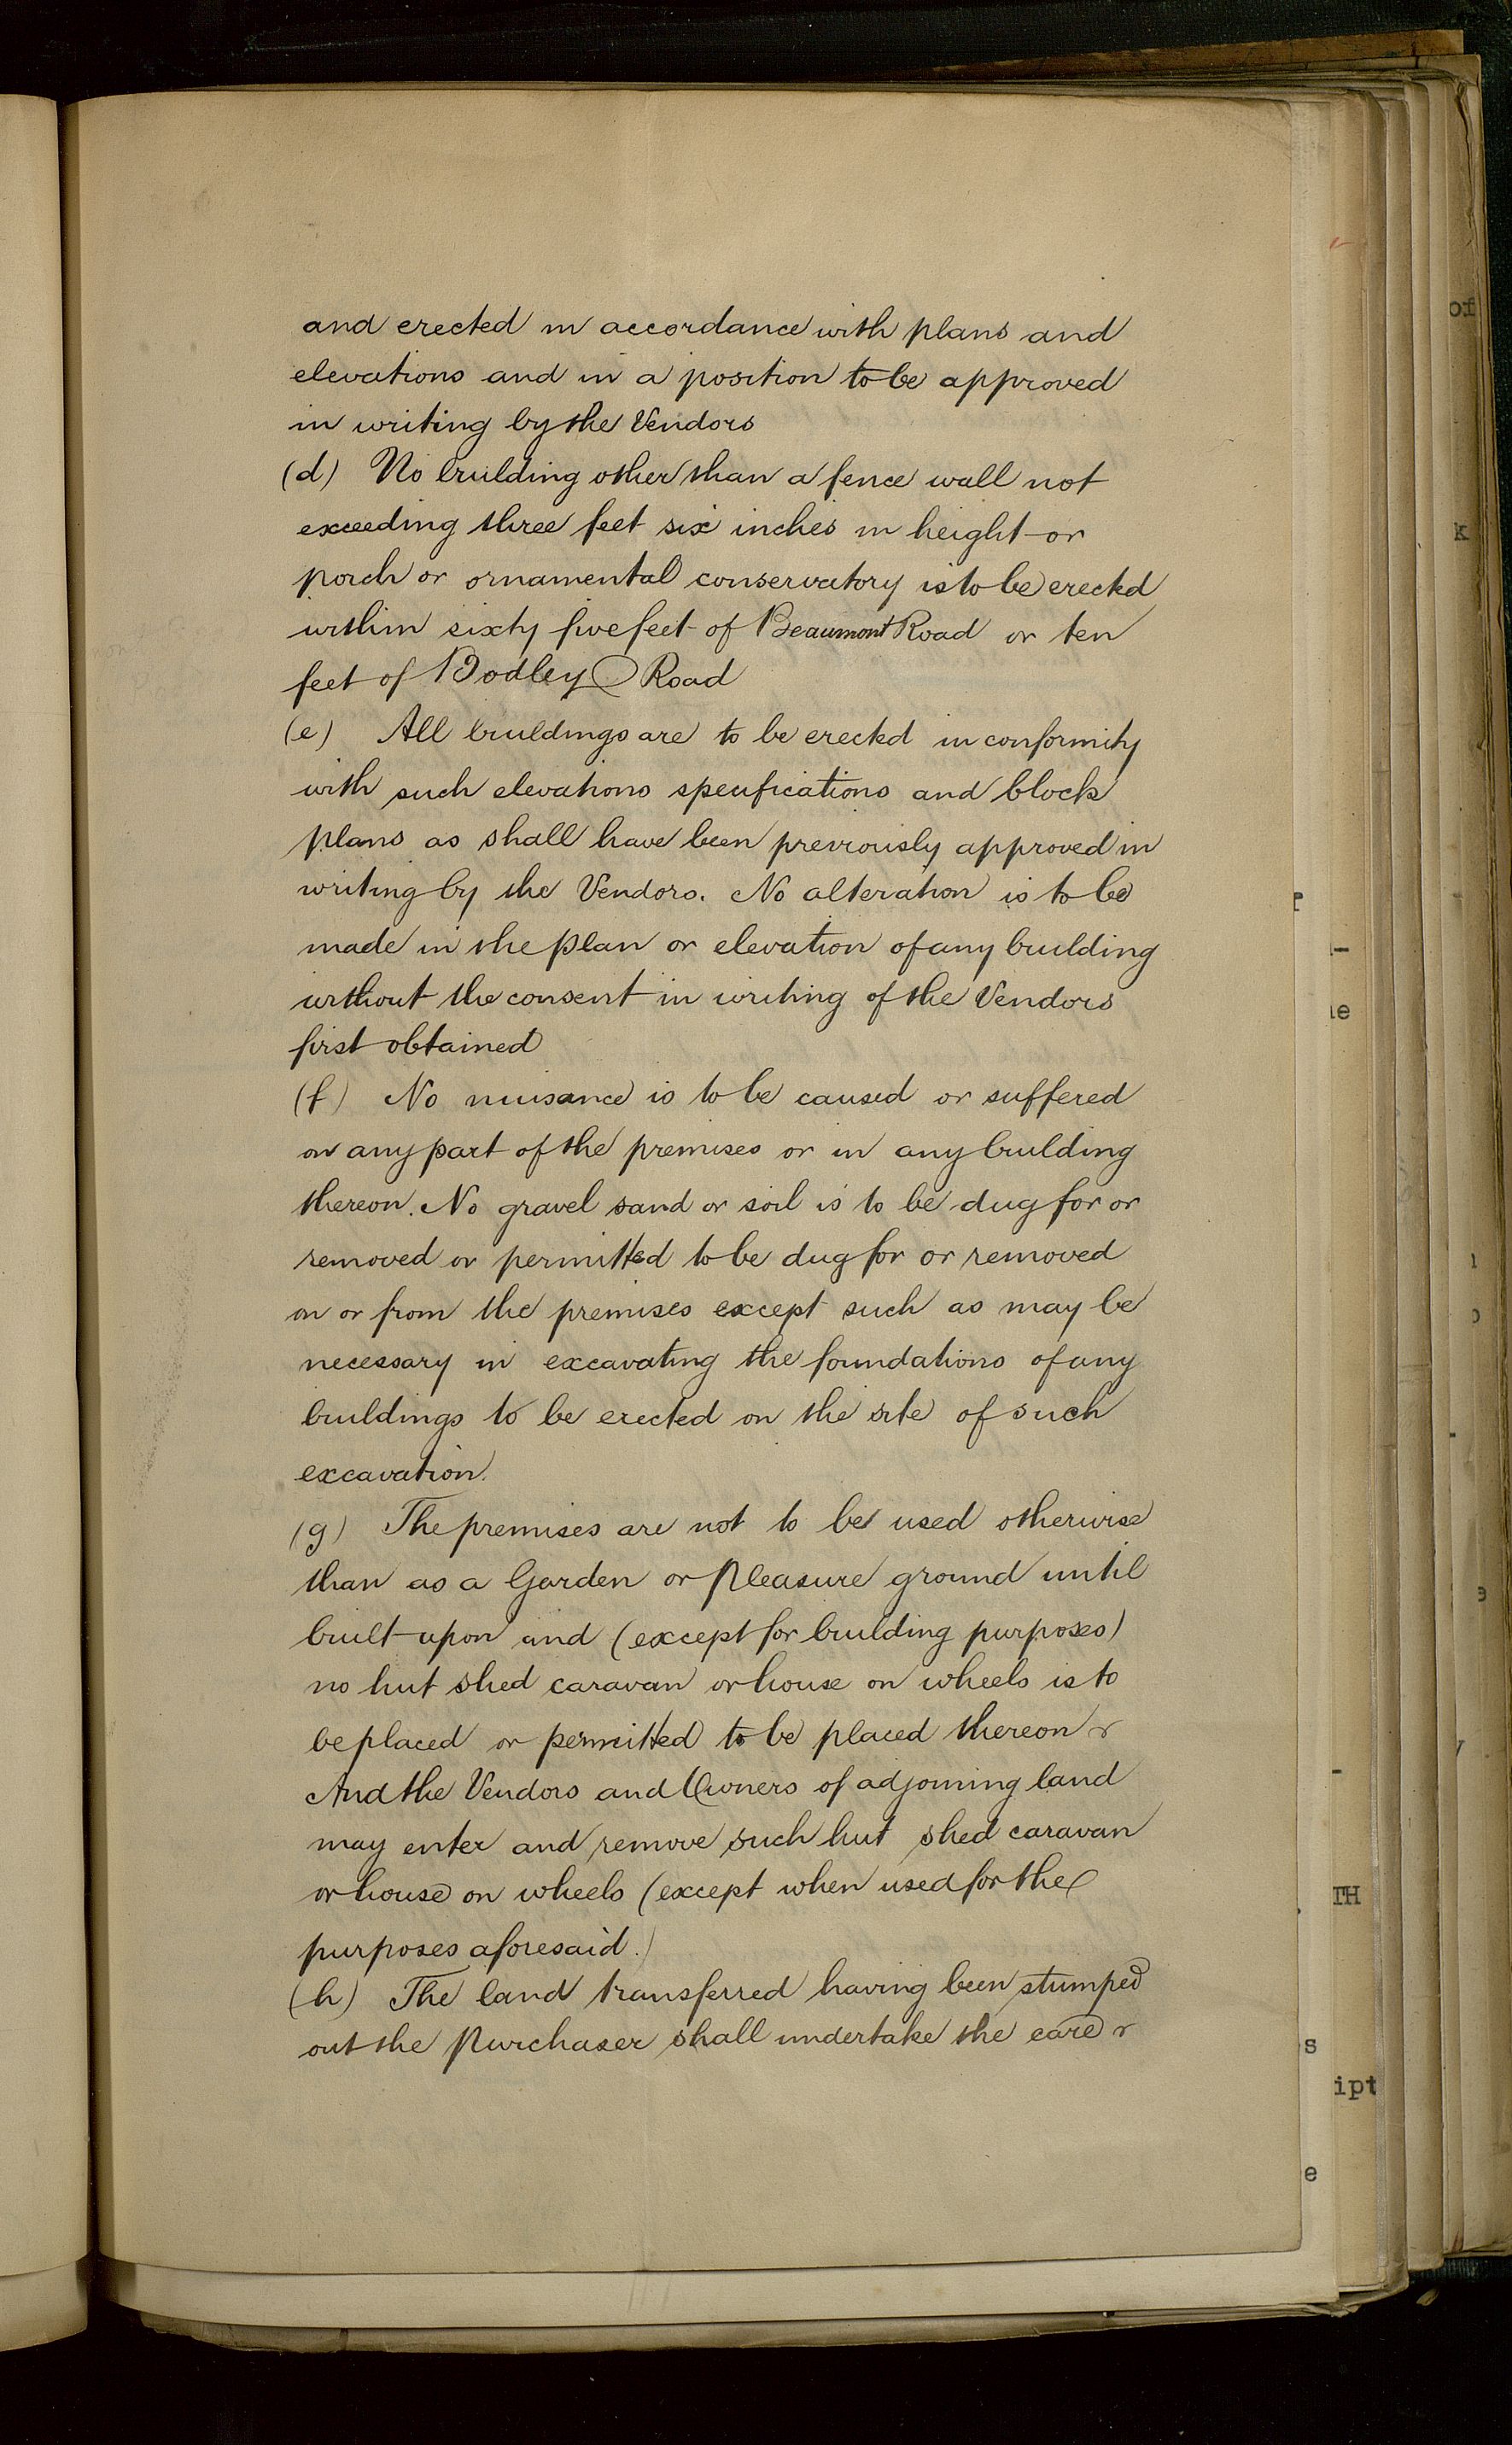 and erected in accordance with plans and
elevations and in a position to be approved
in writing by the Vendors
(d) No building other than a fence wall not
exceeding three feet six inches in height or
porch or ornamental conservatory is to be erected
within sixty five feet of Beaumont Road or ten
feet of Bodley Road
(e) All buildings are to be erected in conformity
with such elevations specifications and block
plans as shall have been previously approved in
writing by the Vendors. No alteration is to be
made in the plan or elevation of any building
without the consent in writing of the Vendors
first obtained
(f) No nuisance is to be caused or suffered
on any part of the premises or in any building
thereon. No gravel sand or soil is to be dug for or
removed or permitted to be dug for or removed
on or from the premises except such as may be
necessary in excavating the foundations of any
buildings to be erected on the site of such
excavation.
(g) The premises are not to be used otherwise
than as a Garden or Pleasure ground until
built upon and (except for building purposes)
no hut shed caravan or house on wheels is to
be placed or permitted to be placed thereon
And the Vendors and Owners of adjoining land
may enter and remove such hut shed caravan
or house on wheels (except when used for the
purposes aforesaid.)
(h) The land transferred having been stumped
out the Purchaser shall undertake the care
of
k
ie
TH
s
ipt
e